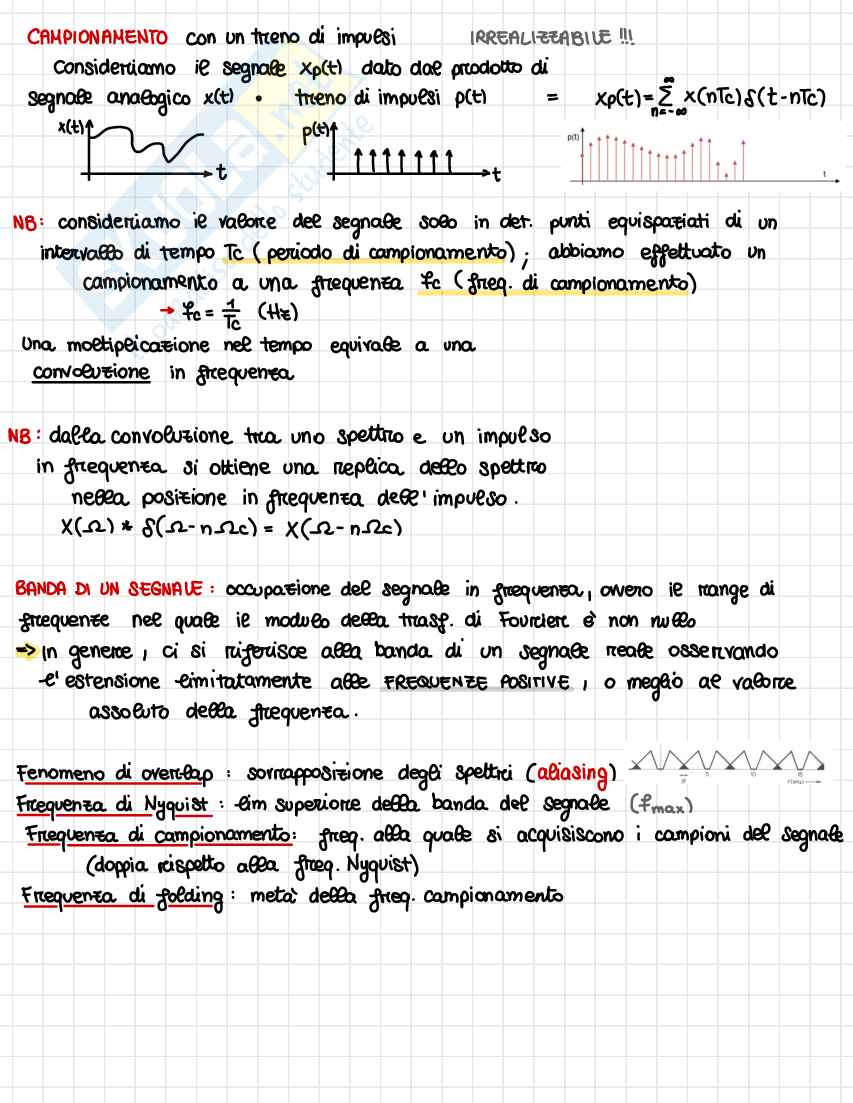 CAMPIONAMENTO con un treno di impulsi IRREALIZZABILE !!!
Consideriamo il segnale xp(t) dato dal prodotto di
segnale analogico x(t) • treno di impulsi p(t) = xp(t) = ∑ x(nTc) δ(t-nTc)
n=-∞ ∞
x(t) t p(t) t p(t) t
NB: consideriamo il valore del segnale solo in det. punti equispaziati di un
intervallo di tempo Tc (periodo di campionamento); abbiamo effettuato un
campionamento a una frequenza fc (freq. di campionamento)
→ fc = 1/Tc (Hz)
Una moltiplicazione nel tempo equivale a una
convoluzione in frequenza
NB: dalla convoluzione tra uno spettro e un impulso
in frequenza si ottiene una replica dello spettro
nella posizione in frequenza dell'impulso.
X(Ω) * δ(Ω-nΩc) = X(Ω-nΩc)
BANDA DI UN SEGNALE: occupazione del segnale in frequenza, ovvero il range di
frequenze nel quale il modulo della trasf. di Fourier è non nullo
=> in genere, ci si riferisce alla banda di un segnale reale osservando
l'estensione limitatamente alle FREQUENZE POSITIVE, o meglio al valore
assoluto della frequenza.
Fenomeno di overlap: sovrapposizione degli spettri (aliasing)
5 10 15
Frequenza di Nyquist: lim superiore della banda del segnale (fmax)
Frequenza di campionamento: freq. alla quale si acquisiscono i campioni del segnale
(doppia rispetto alla freq. Nyquist)
Frequenza di folding: metà della freq. campionamento